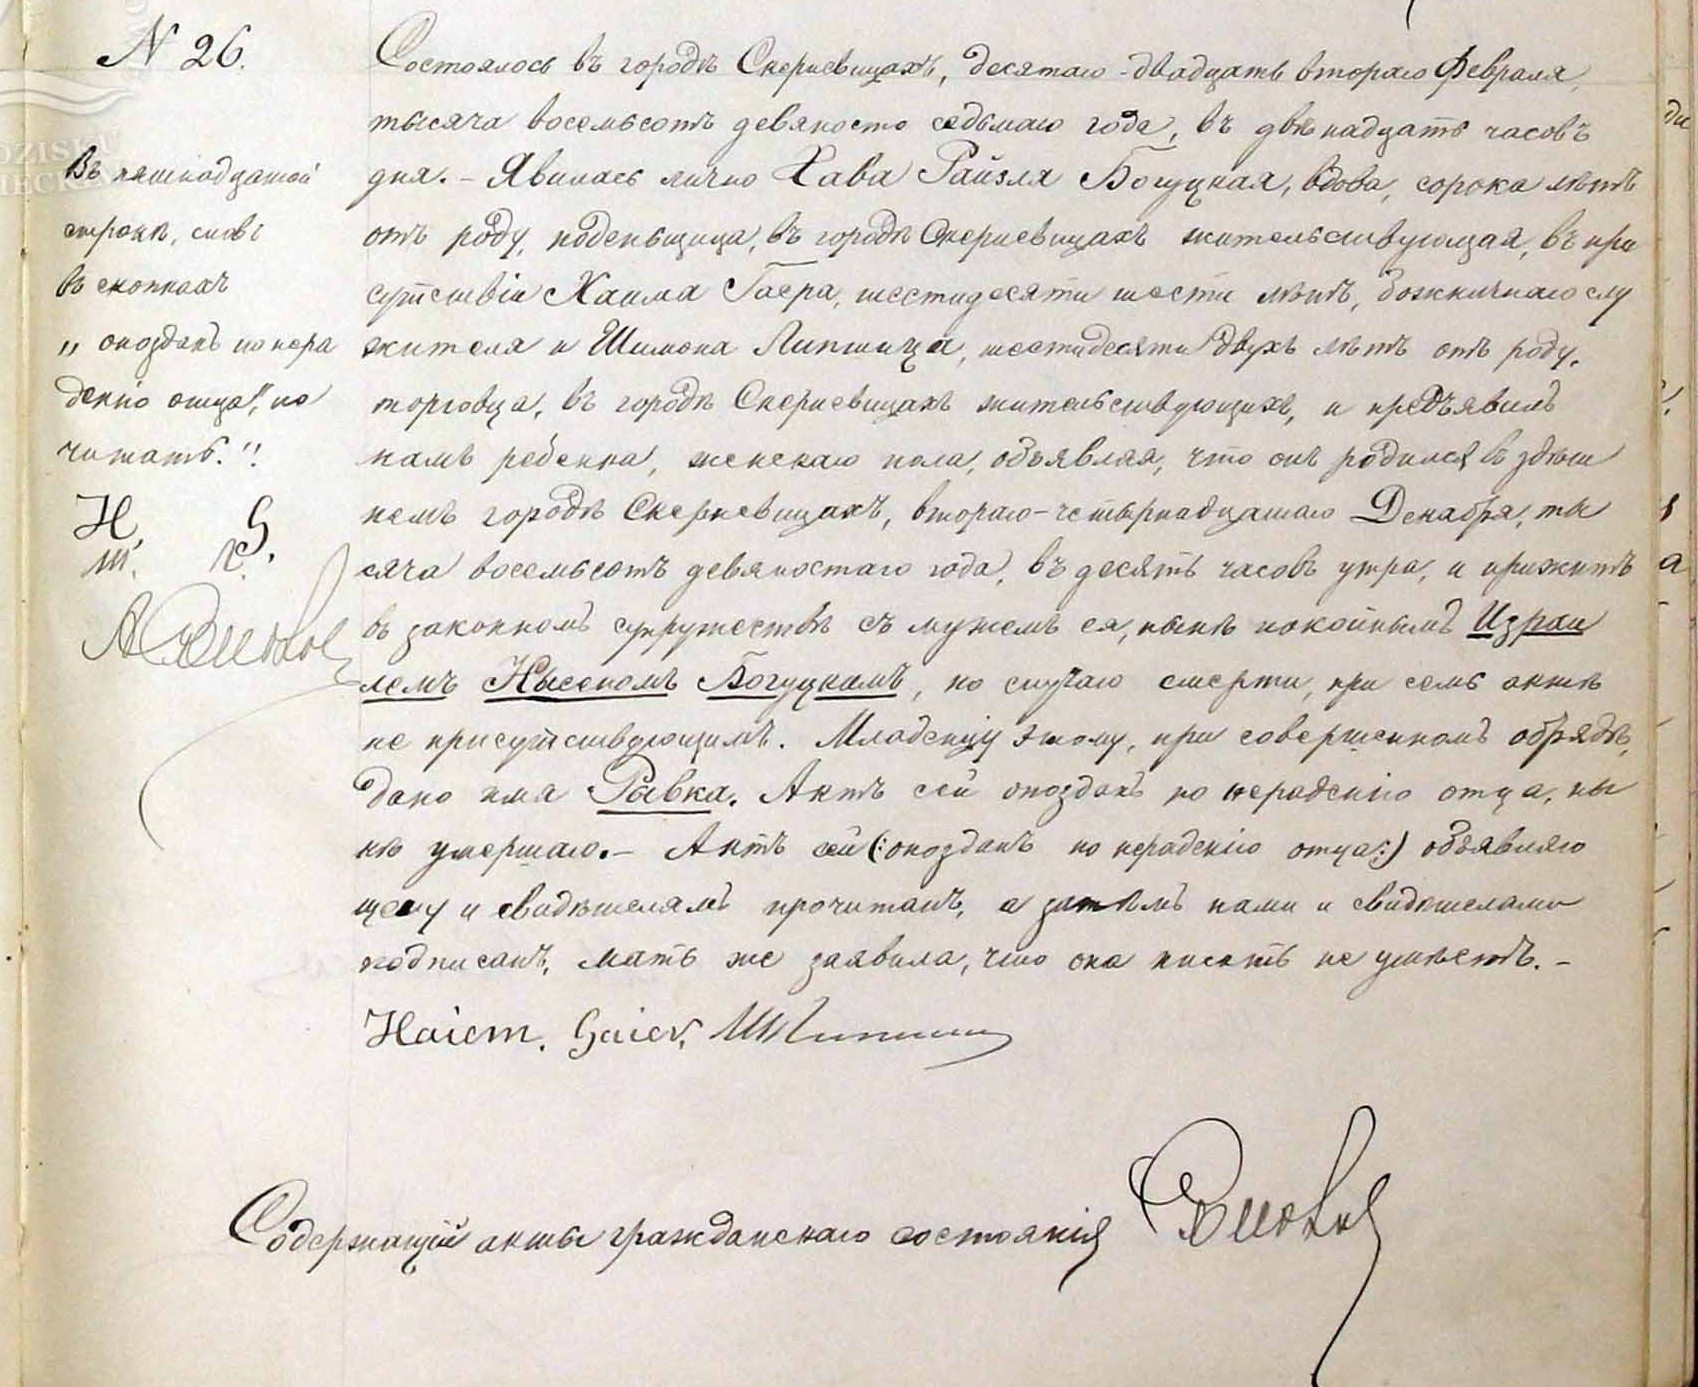 N 26.
Состоялось въ городѣ Скерневицахъ, десятаго - двадцать втораго Февраля,
тысяча восемьсотъ девяносто седьмаго года, въ двѣнадцать часовъ
дня. - Явилась лично Хава Райзля Богуцкая, вдова, сорока лѣтъ
отъ роду, поденьщица, въ городѣ Скерневицахъ жительствующая, въ при
сутствіи Хаима Гаера, шестидесяти шести лѣтъ, божничнаго слу
жителя и Шимона Липшица, шестидесяти двухъ лѣтъ отъ роду,
торговца, въ городѣ Скерневицахъ жительствующихъ, и предъявилъ
намъ ребенка, женскаго пола, объявляя, что онъ родился въ здѣш
немъ городѣ Скерневицахъ, втораго - четырнадцатаго Декабря, ты
сяча восемьсотъ девяностаго года, въ десять часовъ утра, и прижитъ
въ законномъ супружествѣ съ мужемъ ея, нынѣ покойнымъ Израи
лемъ Нысеномъ Богуцкимъ, по случаю смерти, при семъ актѣ
не присутствующимъ. Младенцу этому, при совершенномъ обрядѣ,
дано имя Рывка. Актъ сей опозданъ по нерадению отца, ны
нѣ умершаго. - Актъ сей (: опозданъ по нерадѣнію отца :) объявляю
щему и свидѣтелямъ прочитанъ, а затѣмъ нами и свидѣтелями
подписанъ, мать же заявила, что она писать не умѣетъ. -
Haiem. Gaier, Ш Липшиц
Содержащій акты гражданскаго состоянія
Въ пятнадцатой
строкѣ, слові
въ скопкахъ
„ опозданъ по нера
денію отца", не
читать."
H. G.
Ш. Л.